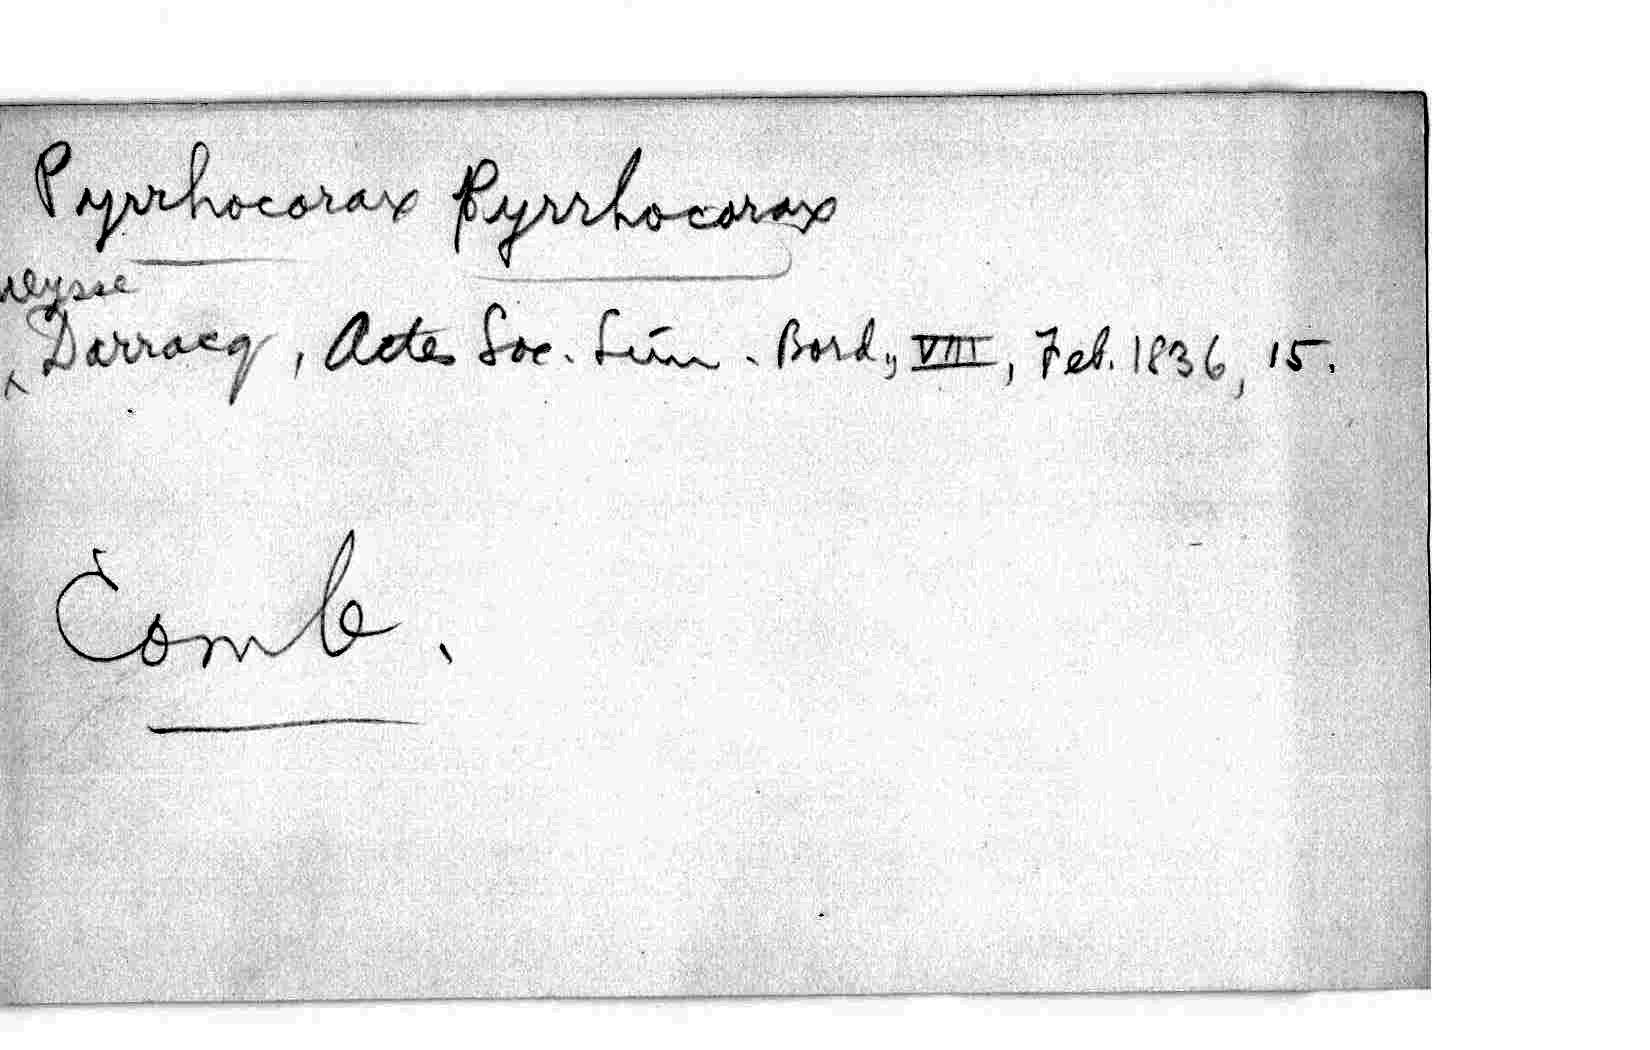 Pyrrhocorax Pyrrhocorax
Ulysse
Darracq, Actes Soc. Linn. Bord., VIII, Feb. 1836, 15.
Comb.